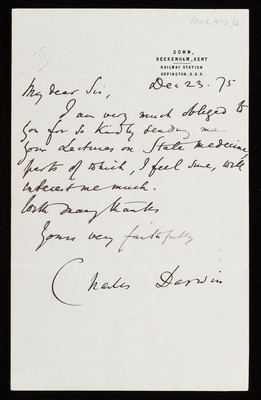 III
DOWN,
BECKENHAM, KENT
RAILWAY STATION
ORPINGTON. S.E.R.
Dec 23. 75
My dear Sir,
I am very much obliged to
you for so kindly sending me
your Lectures on State medicine,
parts of which, I feel sure, will
interest me much.
With many thanks
Yours very faithfully
Charles Darwin